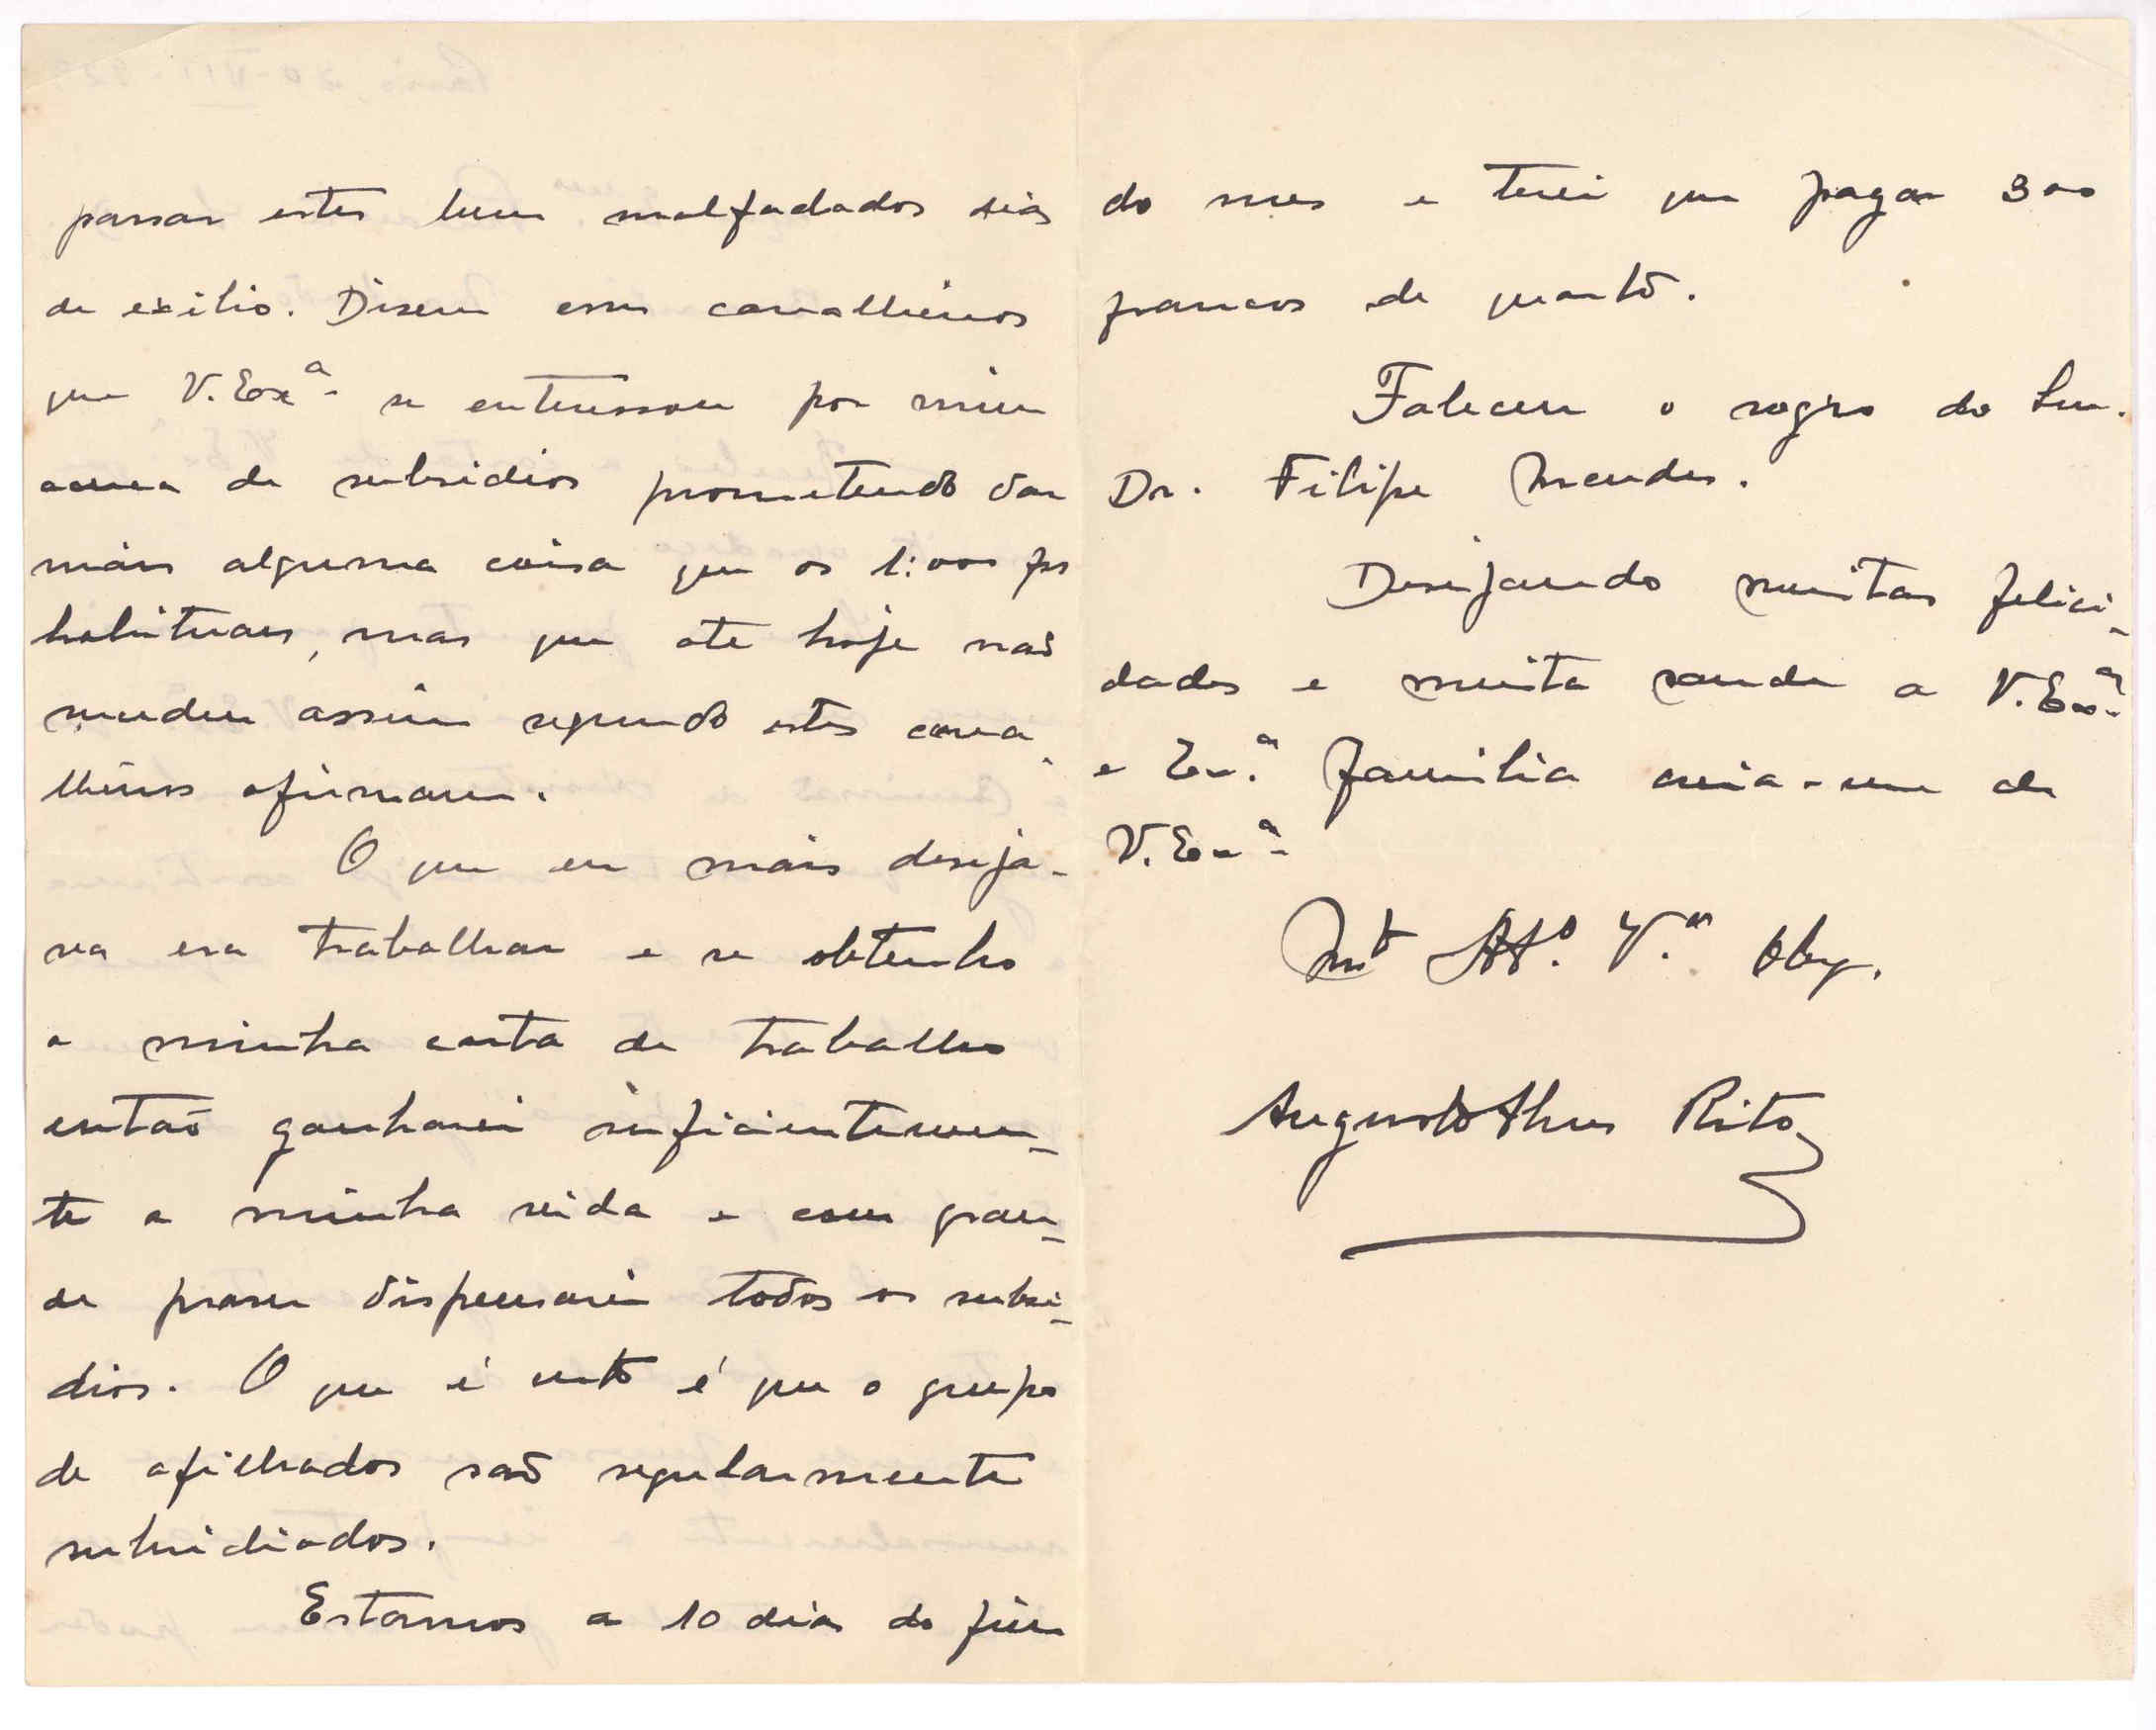 passar estes bem malfadados dias
de exilio. Disem esses cavalheiros
que V. Exª se enteressou por mim
acerca de subsidios prometendo dar
mais alguma coisa que os 1:000 frs
habituaes, mas que ate hoje não
mudou assim segundo estes cava-
lheiros afirmam.
O que eu mais deseja-
va era trabalhar e se obtenho
a minha carta de trabalho
então ganharei suficientemen-
te a minha vida e com gran-
de praser dispensarei todos os subsi-
dios. O que é certo é que o grupo
de afilhados são regularmente
subsidiados.
Estamos a 10 dias do fim
do mes e terei que pagar 300
francos de quarto.
Faleceu o sogro do Snr.
Dr. Filipe Mendes.
Desejando muitas felici-
dades e muita saude a V. Exª
e Exª familia creia-me de
V. Exª
Mt Attº Vºr Obg.
Augusto Rito
Paris, 20-VII-92